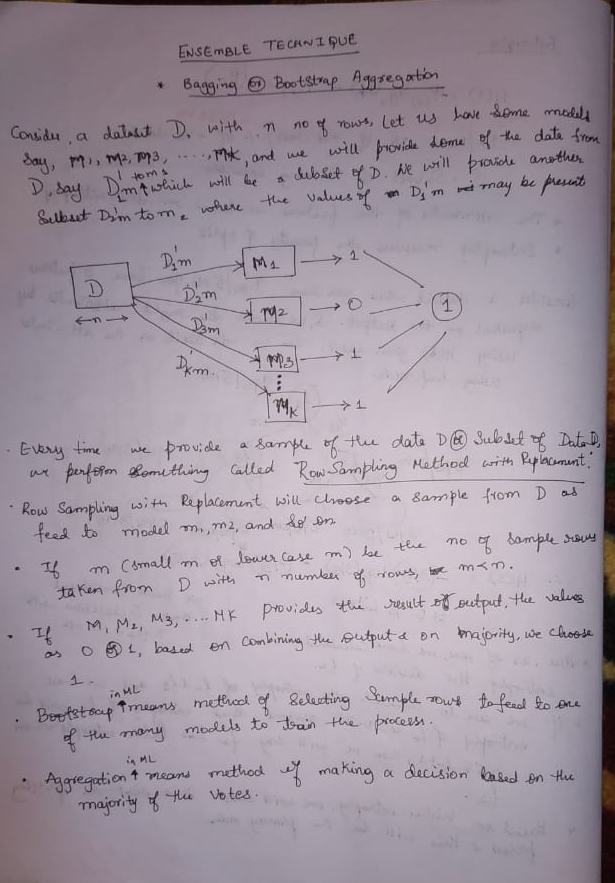 ENSEMBLE TECHNIQUE
* Bagging or Bootstrap Aggregation
Consider, a dataset D, with n no of rows, Let us have some models
say, M1, M2, M3, ....., MK, and we will provide some of the data from
D, say D1'm to m1 which will be a subset of D. We will provide another
Subset D2'm to m2 where the values of D1'm may be present
D
← n →
D1'm
D2'm
D3'm
Dk'm.
M1 → 1
M2 → 0
M3 → 1
MK → 1
1
· Every time we provide a sample of the data D or Subset of Data D,
we perform something called "Row Sampling Method with Replacement."
· Row Sampling with Replacement will choose a sample from D as
feed to model m1, m2, and so on
• If m (small m or lower case m) be the no of sample rows
taken from D with n number of rows, m<n.
• If M1, M2, M3, .... MK provides the result of output, the values
as 0 or 1, based on combining the outputs on majority, we choose
1.
• Bootstrap in ML means method of selecting Sample rows to feed to one
of the many models to train the process.
• Aggregation in ML means method of making a decision based on the
majority of the votes.